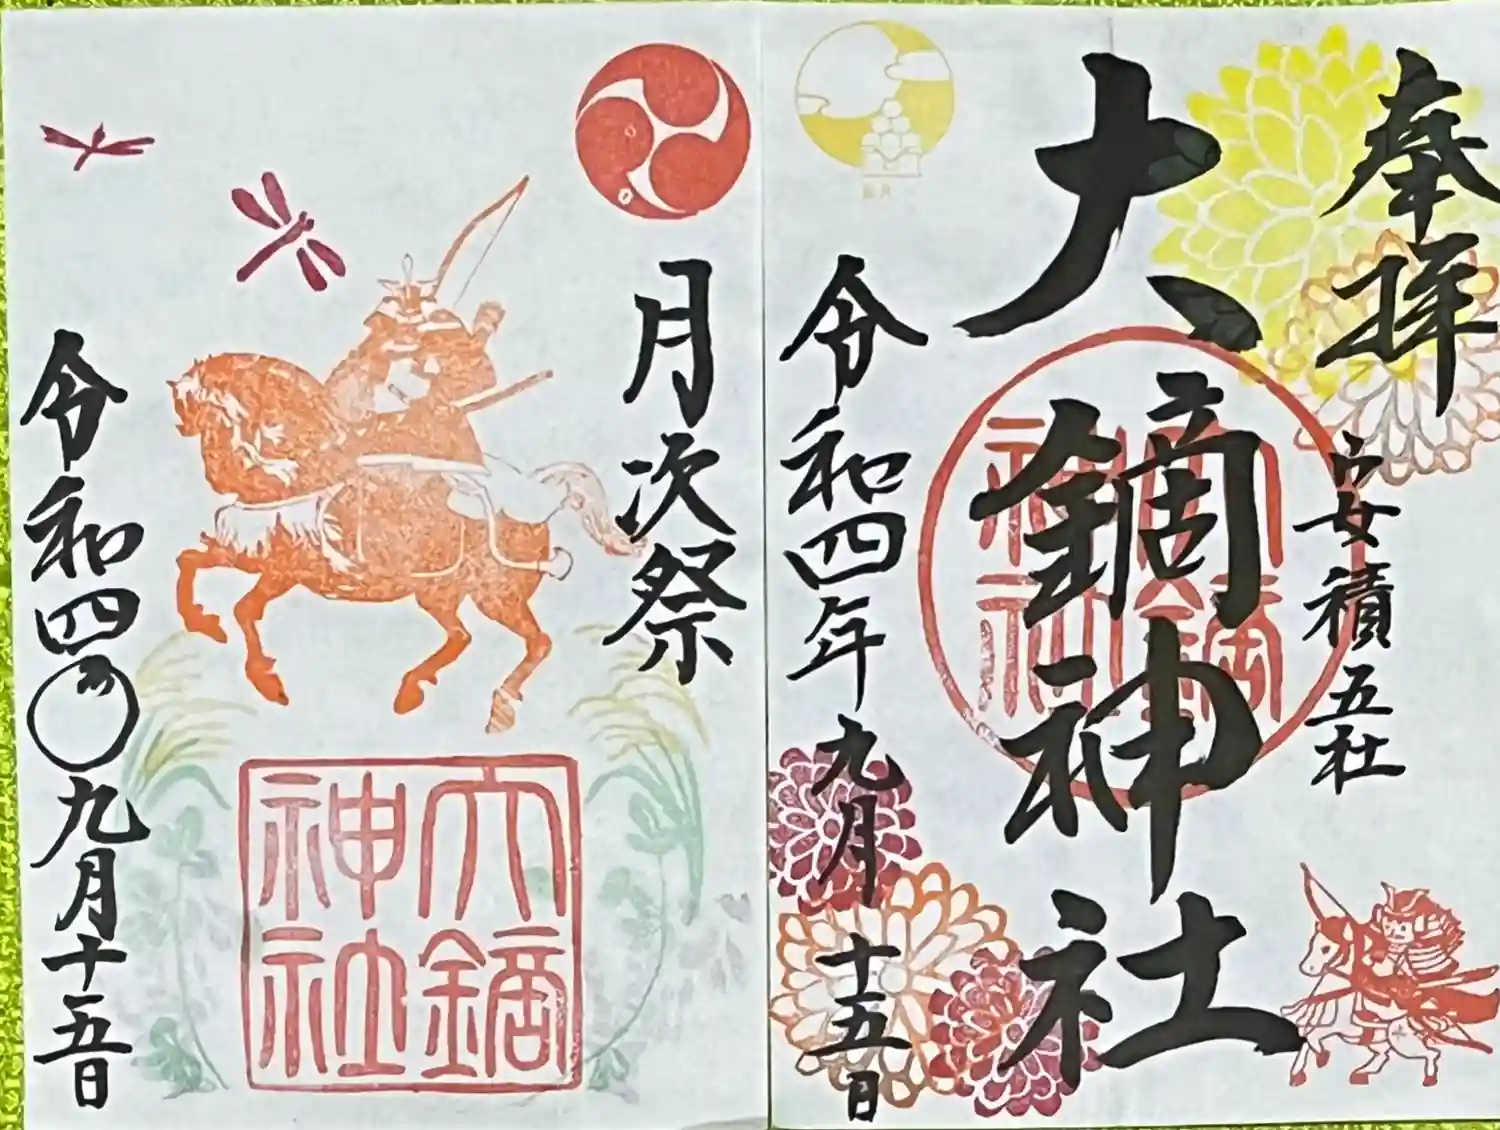 奉拝
安積五社
大鏑神社
大鏑神社
令和四年九月十五日
月次祭
大鏑神社
令和四〇九月十五日